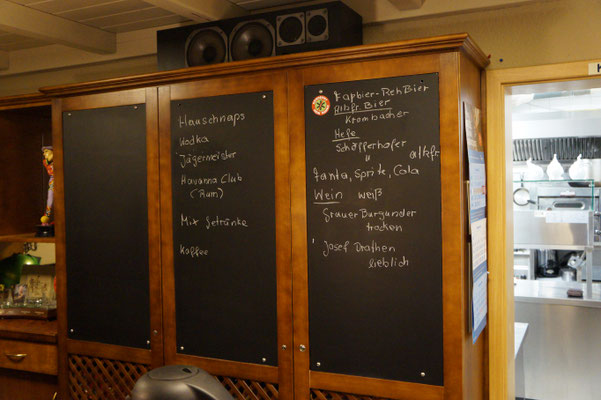 Hausschnaps
Wodka
Jägermeister
Havanna Club
(Rum)
Mix Getränke
Kaffee
Fapbier-Reh Bier
Alkfr Bier
Krombacher
Hefe
Schäfferhofer
" alkfr
Fanta, Sprite, Cola
Wein weiß
Grauer Burgunder
trocken
Josef Drathen
lieblich